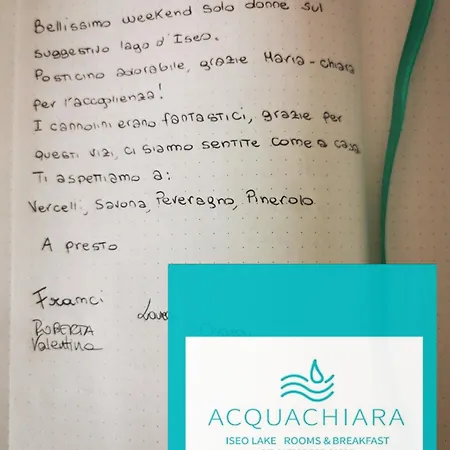 Bellissimo weekend solo donne sul
suggestivo lago d'Iseo.
Posticino adorabile, grazie Maria-Chiara
per l'accoglienza!
I cannolini erano fantastici, grazie per
questi vizi, ci siamo sentite come a casa
Ti aspettiamo a:
Vercelli, Savona, Peveragno, Pinerolo
A presto
Franci
ROBERTA
Valentina
ACQUACHIARA
ISEO LAKE ROOMS & BREAKFAST